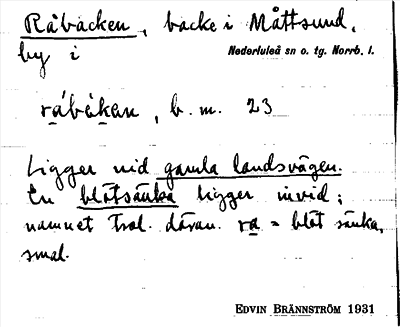 Råbacken, backe i Måttsund,
by i Nederluleå sn o. tg. Norrb. l.
råbäkan, b. m. 23
Ligger vid gamla landsvägen.
En blötsänka ligger invid;
namnet trol. därav. ra = blöt sänka,
smal.
EDVIN BRÄNNSTRÖM 1931